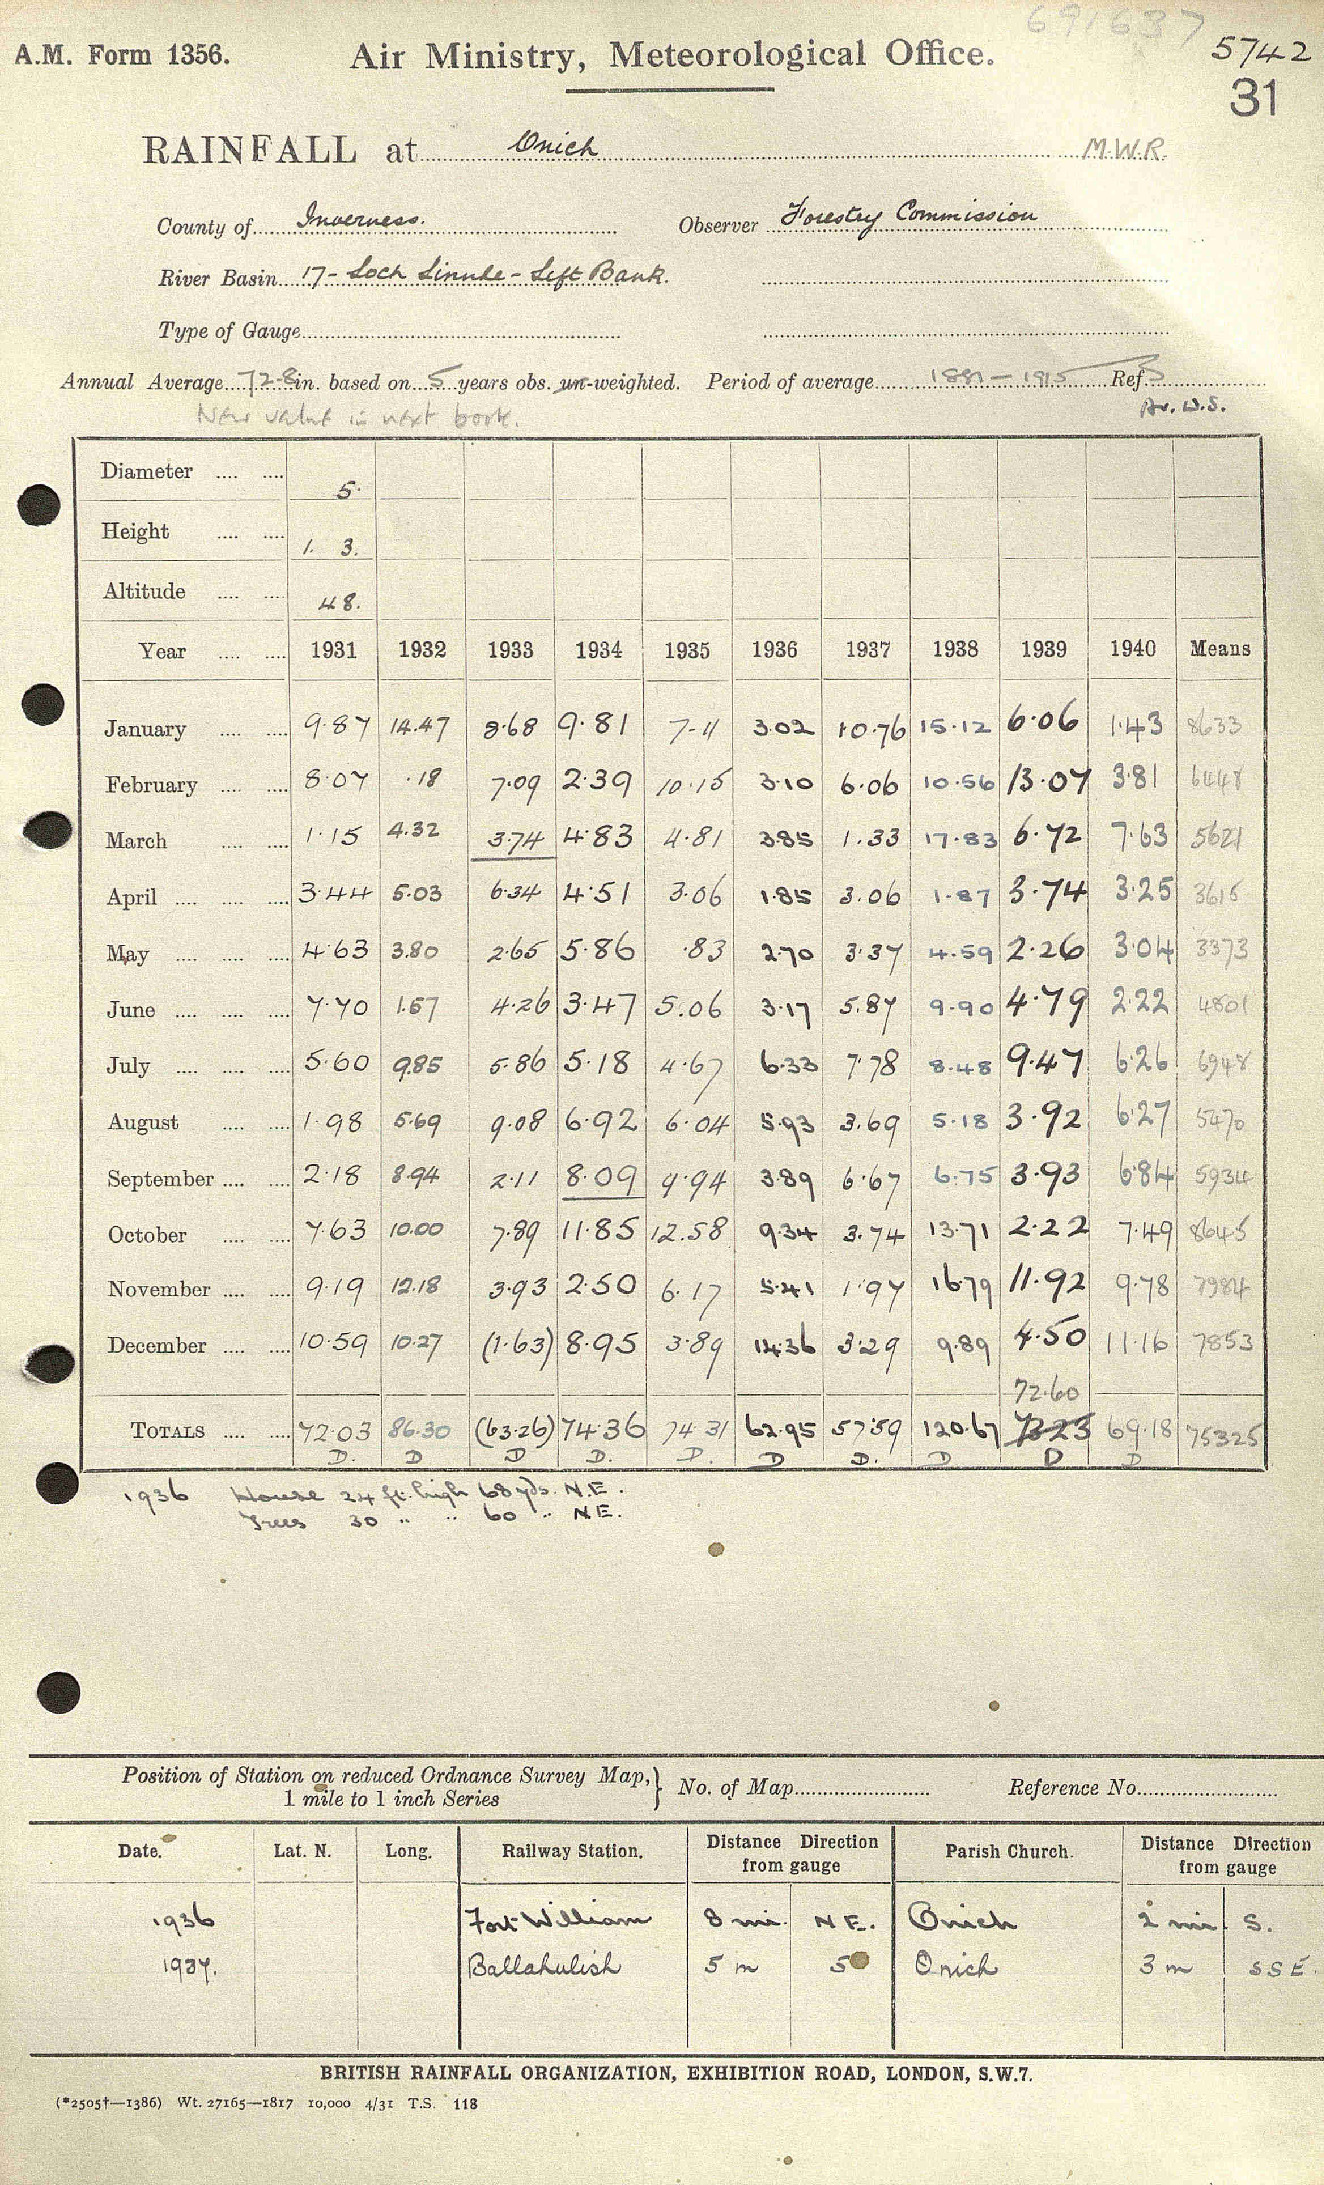 691637
A.M. Form 1356. Air Ministry, Meteorological Office. 5742
31
RAINFALL at Onich M.W.R.
County of Inverness. Observer Forestry Commission
River Basin 17 - Loch Linnhe - Left Bank.
Type of Gauge
Annual Average 72.8 in. based on 5 years obs. un-weighted. Period of average 1881-1915 Ref.
New value in next book. Av. W.S.
Diameter 5.
Height 1. 3.
Altitude 48.
Year 1931 1932 1933 1934 1935 1936 1937 1938 1939 1940 Means
January 9.87 14.47 8.68 9.81 7.11 3.02 10.76 15.12 6.06 1.43 8633
February 8.07 .18 7.09 2.39 10.15 3.10 6.06 10.56 13.07 3.81 6448
March 1.15 4.32 3.74 4.83 4.81 3.85 1.33 17.83 6.72 7.63 5621
April 3.44 5.03 6.34 4.51 3.06 1.85 3.06 1.87 3.74 3.25 3615
May 4.63 3.80 2.65 5.86 .83 2.70 3.37 4.59 2.26 3.04 3373
June 7.70 1.57 4.26 3.47 5.06 3.17 5.87 9.90 4.79 2.22 4801
July 5.60 9.85 5.86 5.18 4.67 6.33 7.78 8.48 9.47 6.26 6948
August 1.98 5.69 9.08 6.92 6.04 5.93 3.69 5.18 3.92 6.27 5470
September 2.18 8.94 2.11 8.09 9.94 3.89 6.67 6.75 3.93 6.84 5934
October 7.63 10.00 7.89 11.85 12.58 9.34 3.74 13.71 2.22 7.49 8645
November 9.19 12.18 3.93 2.50 6.17 5.41 1.97 16.79 11.92 9.78 7984
December 10.59 10.27 (1.63) 8.95 3.89 14.36 3.29 9.89 4.50 11.16 7853
72.60
TOTALS 72.03 86.30 (63.26) 74.36 74.31 62.95 57.59 120.67 7323 69.18 75325
D. D D D. D. D D. D D D
1936 House 24 ft. high 68 yds. N.E.
Trees 30 " " 60 " N.E.
Position of Station on reduced Ordnance Survey Map,
1 mile to 1 inch Series } No. of Map Reference No.
Date. Lat. N. Long. Railway Station. Distance Direction from gauge Parish Church. Distance Direction from gauge
1936 Fort William 8 mi. N E. Onich 2 mi S.
1937. Ballahulish 5 m S Onich 3 m S S E.
BRITISH RAINFALL ORGANIZATION, EXHIBITION ROAD, LONDON, S.W.7.
(*2505†—1386) Wt. 27165—1817 10,000 4/31 T.S. 118